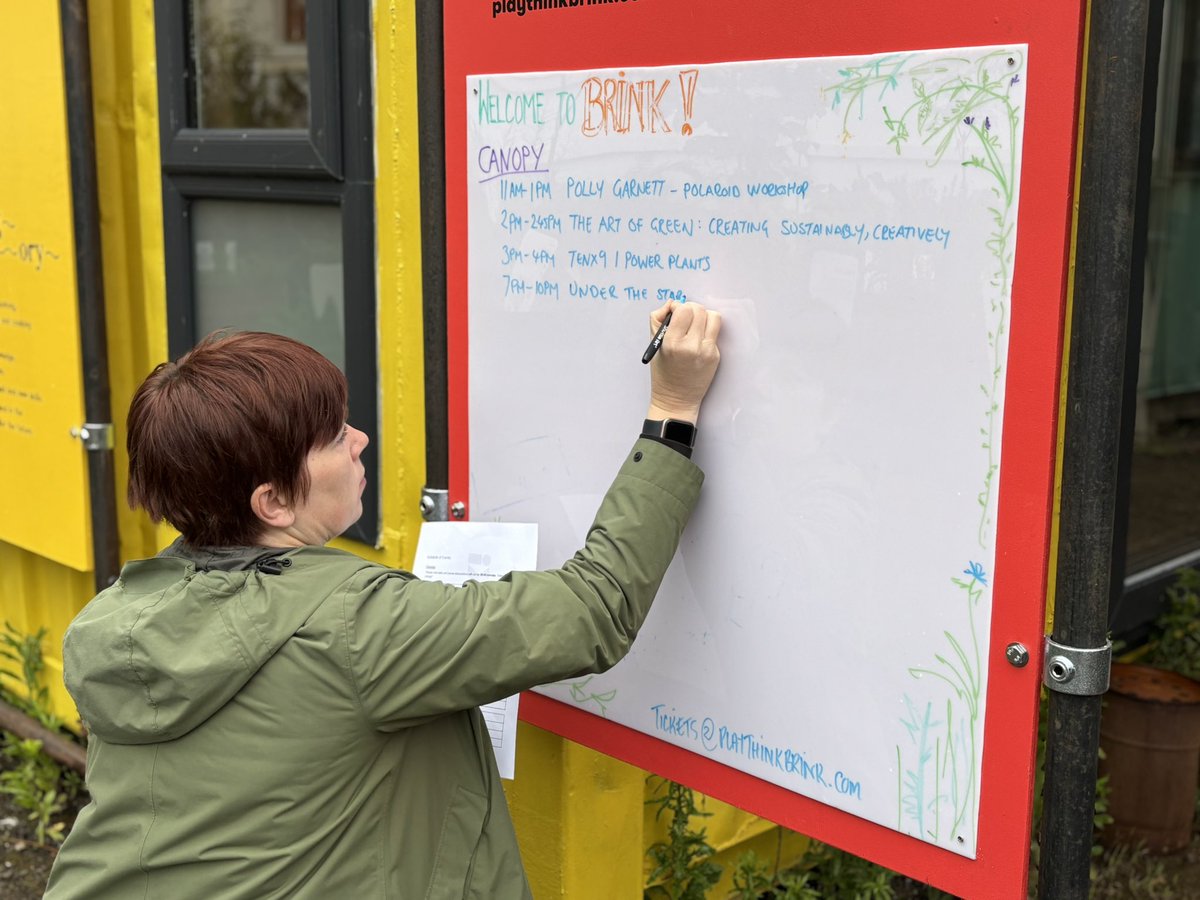 playthinkbrink.
WELCOME TO BRINK!
CANOPY
11AM-1PM POLLY GARNETT - POLAROID WORKSHOP
2PM-245PM THE ART OF GREEN: CREATING SUSTAINABLY, CREATIVELY
3PM-4PM TENX9 | POWER PLANTS
7PM-10PM UNDER THE STAR
TICKETS@PLAYTHINKBRINK.COM